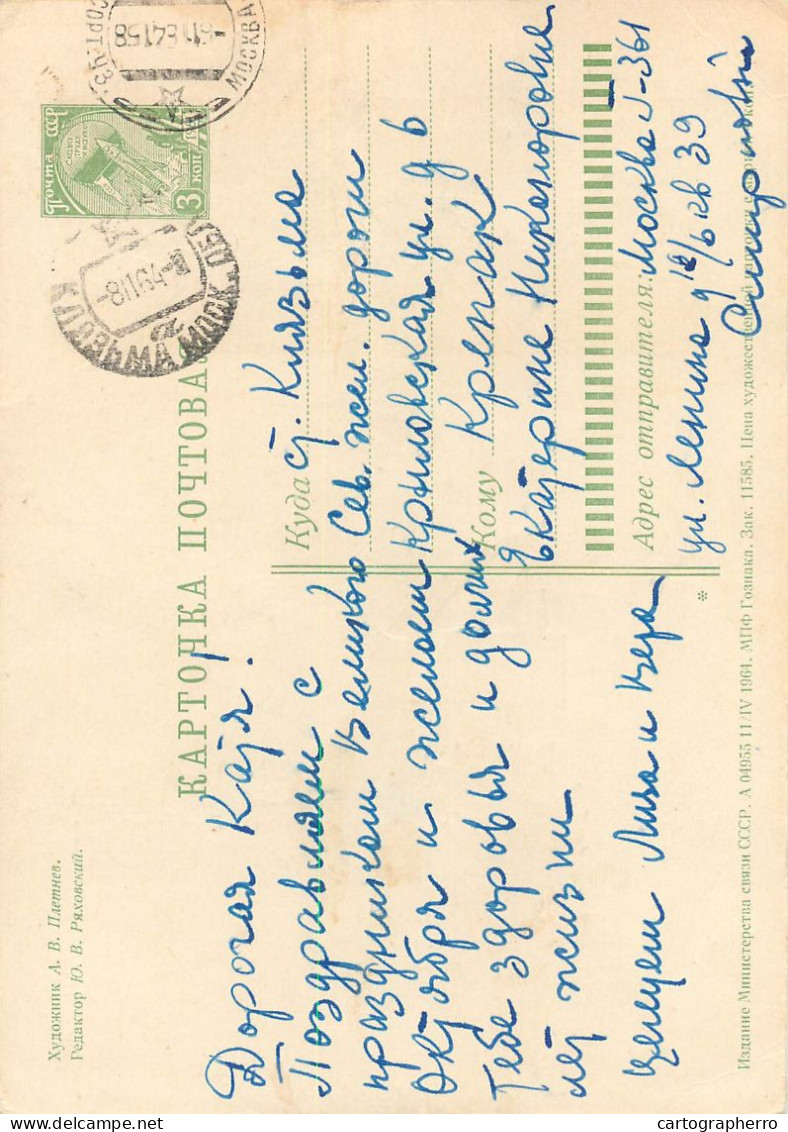 Художник А. В. Плетнев.
Редактор Ю. В. Ряховский.
КАРТОЧКА ПОЧТОВА
Почта СССР
3 коп
МОСКВА
КЛЯЗЬМА МОСК. ОБ
Дорогая Катя!
Поздравляем с
праздником Великого
Октября и желаем
Тебе здоровья и долгих
лет жизни
целуем Лиза и Вера
Куда ст. Клязьма
Сев. жел. дороги
Крыловская ул. д 6
Кому Крепак
Екатерине Никаноровне
Адрес отправителя: Москва Г-361
ул. Ленина д 12/6 кв 39
Издание Министерства связи СССР. А 04955 11/IV 1964. МПФ Гознака. Зак. 11585. Цена художественной
cartographerro